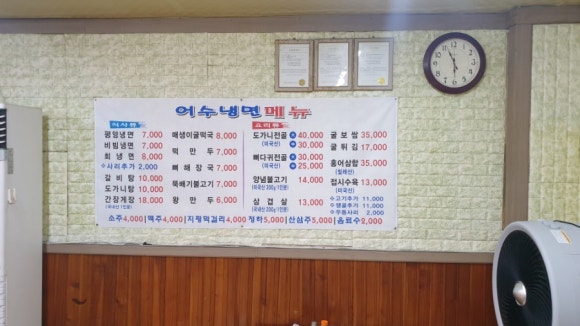 어수냉면메뉴
식사류
평양냉면 7,000
비빔냉면 7,000
회냉면 8,000
※사리추가 2,000
갈비탕 10,000
도가니탕 10,000
간장게장 18,000
(국내산 1인분)
매생이굴떡국 8,000
떡만두 7,000
뼈해장국 7,000
뚝배기불고기 7,000
왕만두 6,000
요리류
도가니전골 대 40,000
(미국산) 소 30,000
뼈다귀전골 대 30,000
(미국산) 소 25,000
양념불고기 14,000
(미국산 200g 1인분)
삼겹살 13,000
굴보쌈 35,000
굴튀김 17,000
홍어삼합 35,000
(칠레산)
접시수육 13,000
(미국산)
※고기추가 11,000
※생굴추가 11,000
※우동사리 2,000
소주4,000|맥주4,000|지평막걸리4,000|청하5,000|산삼주5,000|음료수2,000